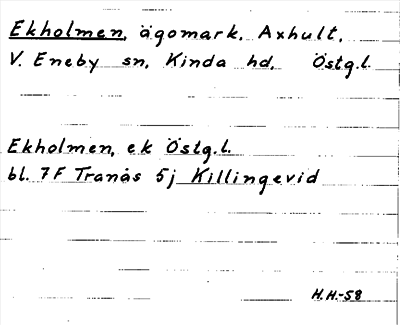 Ekholmen, ägomark, Axhult,
V. Eneby sn, Kinda hd, Östg.l.
Ekholmen, ek Östg.l.
bl. 7F Tranås 5j Killingevid
H.H.-58